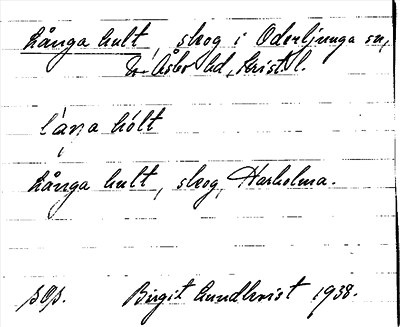 Långa hult, skog i Oderljunga sn,
V. Åsbo hd, Krist. l.
låŋa hólt
Långa hult, skog, Harholma.
sOs. Birgit Lundkvist 1938.